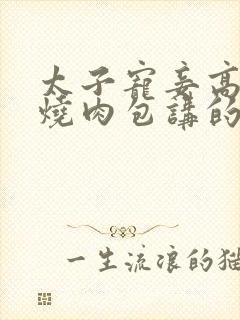 太子寵妾高
燒肉包講的
一生流浪的貓